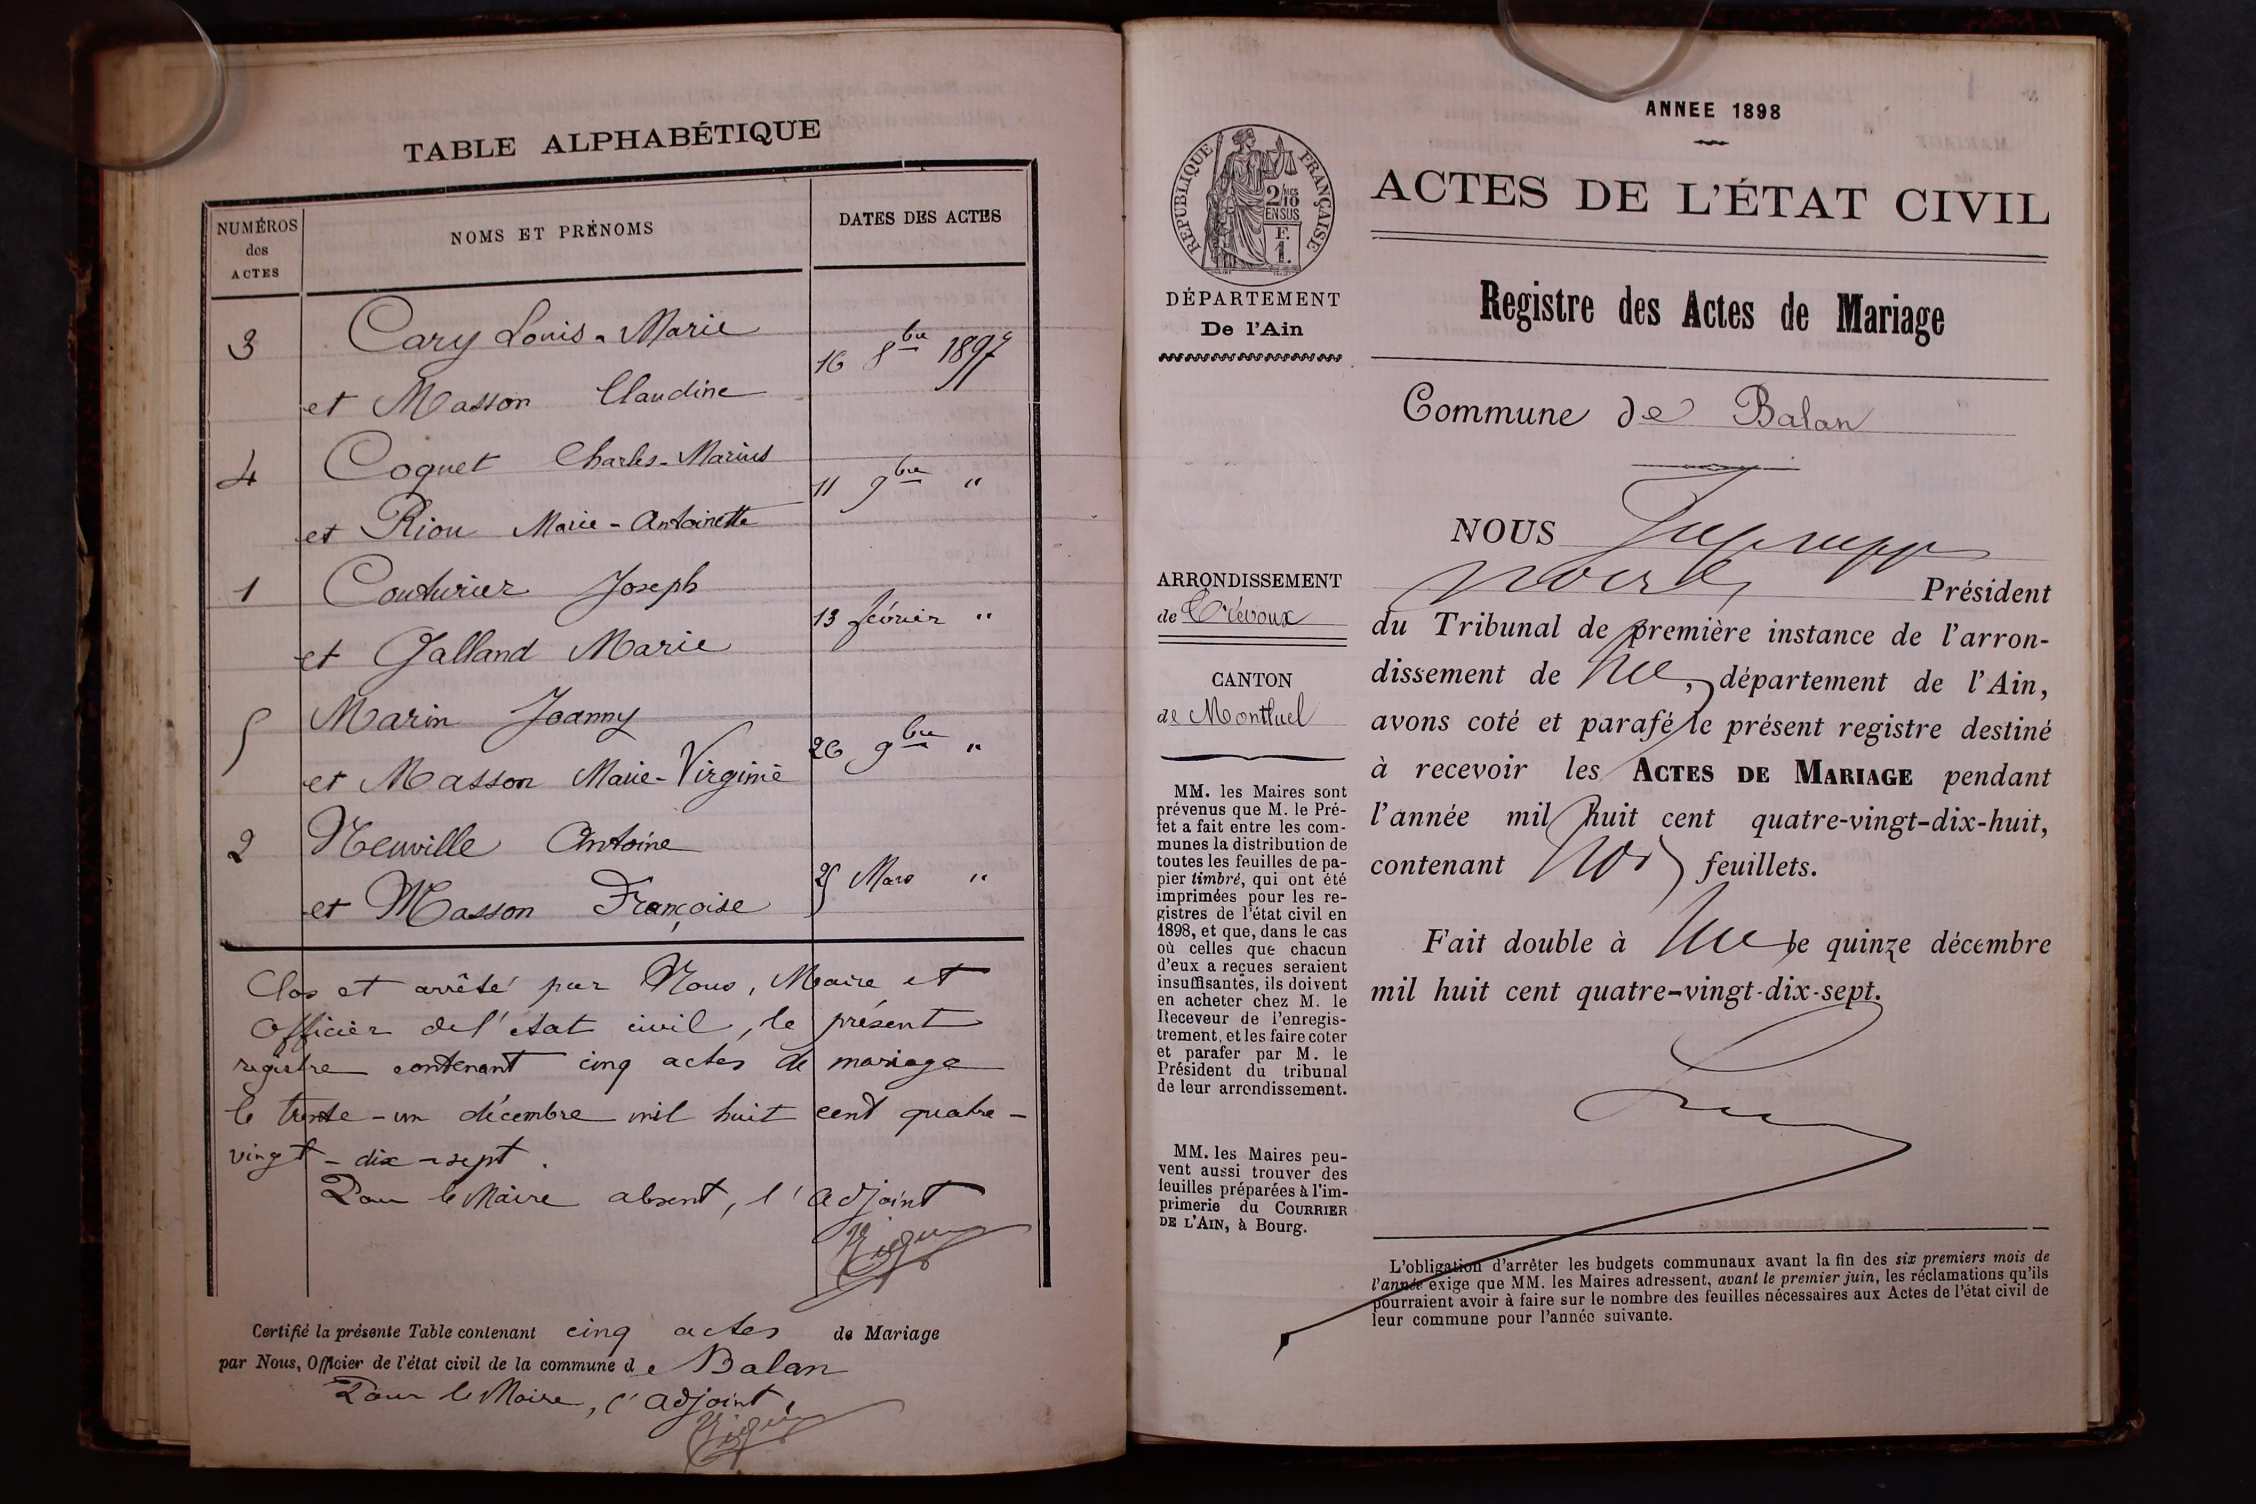 TABLE ALPHABÉTIQUE
NUMÉROS
des
ACTES
NOMS ET PRÉNOMS
DATES DES ACTES
3 Cary Louis-Marie
16 8bre 1897
et Masson Claudine
4 Coquet Charles-Marius
11 9bre "
et Riou Marie-Antoinette
1 Couturier Joseph
13 février "
et Galland Marie
5 Marin Joanny
26 9bre "
et Masson Marie-Virginie
2 Neuville Antoine
25 Mars "
et Masson Françoise
Clos et arrêté par Nous, Maire et
Officier de l'état civil, le présent
registre contenant cinq actes de mariage
le trente-un décembre mil huit cent quatre-
vingt-dix-sept.
Pour le Maire absent, l'adjoint
Certifié la présente Table contenant cinq actes de Mariage
par Nous, Officier de l'état civil de la commune de Balan
Pour le Maire, l'adjoint,
ANNEE 1898
RÉPUBLIQUE FRANÇAISE
2/10
EN SUS
F.
1.
ACTES DE L'ÉTAT CIVIL
DÉPARTEMENT
De l'Ain
Registre des Actes de Mariage
Commune de Balan
ARRONDISSEMENT
de Trévoux
CANTON
de Montluel
MM. les Maires sont
prévenus que M. le Pré-
fet a fait entre les com-
munes la distribution de
toutes les feuilles de pa-
pier timbré, qui ont été
imprimées pour les re-
gistres de l'état civil en
1898, et que, dans le cas
où celles que chacun
d'eux a reçues seraient
insuffisantes, ils doivent
en acheter chez M. le
Receveur de l'enregis-
trement, et les faire coter
et parafer par M. le
Président du tribunal
de leur arrondissement.
MM. les Maires peu-
vent aussi trouver des
feuilles préparées à l'im-
primerie du COURRIER
DE L'AIN, à Bourg.
NOUS
Président
du Tribunal de première instance de l'arron-
dissement de , département de l'Ain,
avons coté et parafé le présent registre destiné
à recevoir les ACTES DE MARIAGE pendant
l'année mil huit cent quatre-vingt-dix-huit,
contenant feuillets.
Fait double à le quinze décembre
mil huit cent quatre-vingt-dix-sept.
L'obligation d'arrêter les budgets communaux avant la fin des six premiers mois de
l'année exige que MM. les Maires adressent, avant le premier juin, les réclamations qu'ils
pourraient avoir à faire sur le nombre des feuilles nécessaires aux Actes de l'état civil de
leur commune pour l'année suivante.